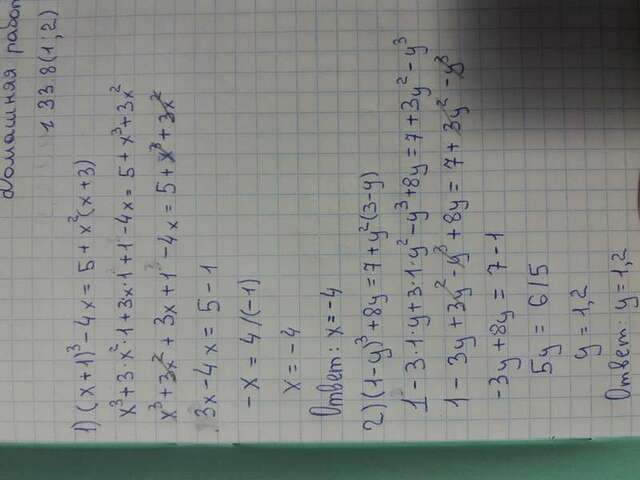 Домашняя работ
№ 338(1;2)
1) (x+1)³ - 4x = 5 + x²(x+3)
x³ + 3·x²·1 + 3x·1 + 1 - 4x = 5 + x³ + 3x²
x³ + 3x² + 3x + 1³ - 4x = 5 + x³ + 3x²
3x - 4x = 5 - 1
-x = 4 /(-1)
x = -4
Ответ: x = -4
2) (1-y)³ + 8y = 7 + y²(3-y)
1 - 3·1·y + 3·1·y² - y³ + 8y = 7 + 3y² - y³
1 - 3y + 3y² - y³ + 8y = 7 + 3y² - y³
-3y + 8y = 7 - 1
5y = 6 /5
y = 1,2
Ответ: y = 1,2